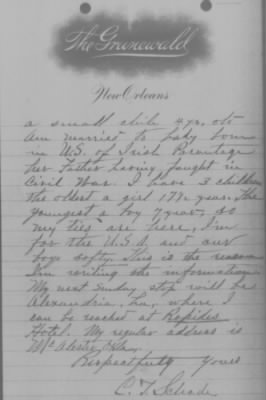 The Grunewald
New Orleans
a small child 4 yrs. old
am married to lady born
in U.S. of Irish Parentage
her Father having fought in
Civil War. I have 3 children
the oldest a girl 17½ years, the
youngest a boy 7 years, so
my ties are here, I'm
for the U.S.A and our
boys softy. This is the reason
I'm writing the information
My next Sunday stop will be
Alexandria, La, where I
can be reached at Rapides
Hotel. My regular address is
McAlester Okla.
Respectfully Yours
C. T. Schrader